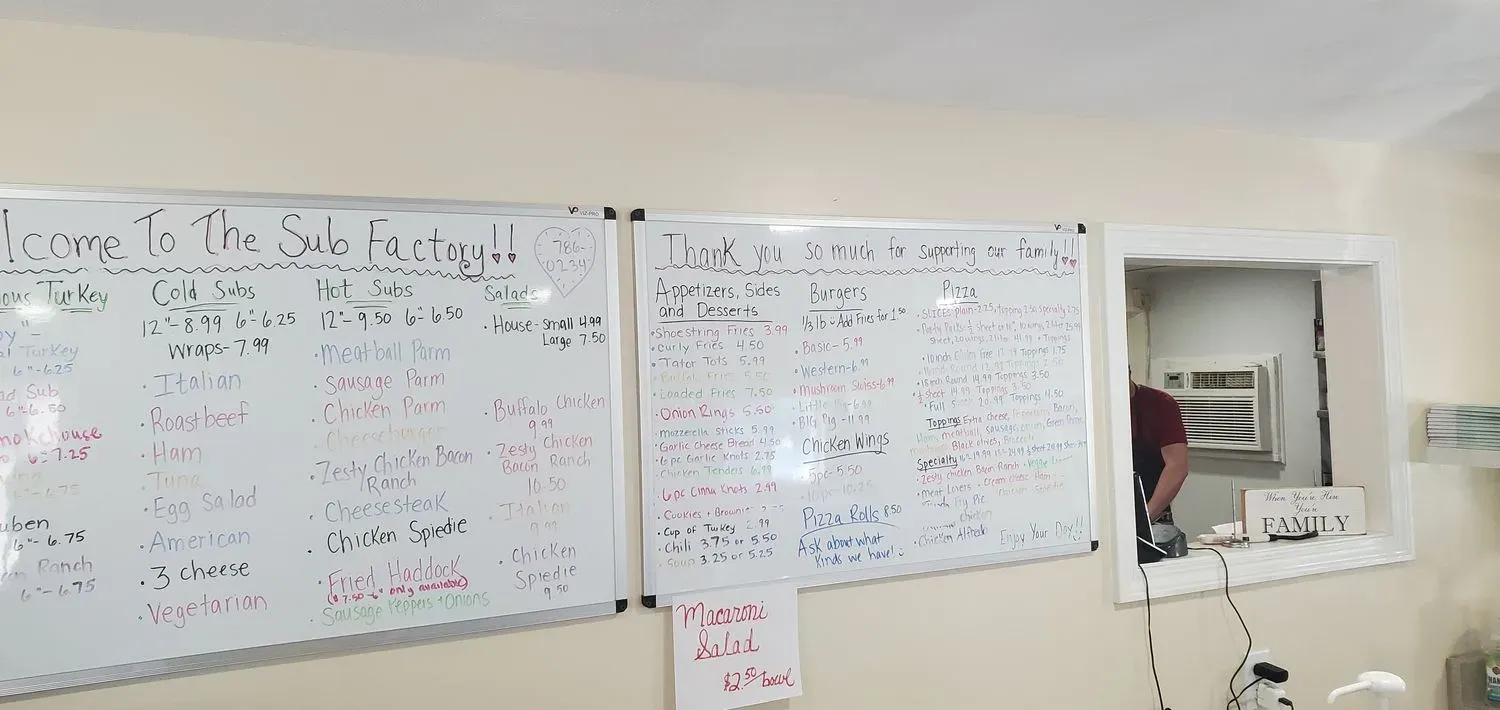 lcome To The Sub Factory!!
786-
0234
ous Turkey
Turkey
6"-6.25
ad Sub
6"-6.50
mokehouse
6"-7.25
6"-6.75
uben
6"-6.75
Ranch
6"-6.75
Cold Subs
12"-8.99 6"-6.25
Wraps-7.99
• Italian
• Roastbeef
• Ham
• Tuna
• Egg Salad
• American
• 3 cheese
• Vegetarian
Hot Subs
12"-9.50 6"-6.50
• Meatball Parm
• Sausage Parm
• Chicken Parm
• Cheeseburger
• Zesty Chicken Bacon
Ranch
• Cheesesteak
• Chicken Spiedie
• Fried Haddock
($7.50-6" only available)
• Sausage Peppers + Onions
Salads
• House-Small 4.99
Large 7.50
• Buffalo Chicken
9.99
• Zesty Chicken
Bacon Ranch
10.50
• Italian
9.99
• Chicken
Spiedie
9.50
VIZ-PRO
Thank you so much for supporting our family!!
Appetizers, Sides
and Desserts
• Shoestring Fries 3.99
• Curly Fries 4.50
• Tator Tots 5.99
• Buffalo Fries 5.50
• Loaded Fries 7.50
• Onion Rings 5.50
• Mozzerella Sticks 5.99
• Garlic Cheese Bread 4.50
• 6pc Garlic Knots 2.75
• Chicken Tenders 6.99
• 6pc Cinna Knots 2.99
• Cookies + Brownie
• Cup of Turkey 2.99
• Chili 3.75 or 5.50
• Soup 3.25 or 5.25
Burgers
1/3 lb Add Fries for 1.50
• Basic-5.99
• Western-6.99
• Mushroom Swiss-6.99
• Little Pig-6.99
• BIG Pig-11.99
Chicken Wings
5pc-5.50
10pc-10.25
Pizza Rolls 8.50
Ask about what
kinds we have!
Pizza
• SLICES plain-2.25, topping 2.50 Specialty 2.75
Sheet, 20 wings, 2 liter 41.99 + Toppings
• 10inch Free Toppings 1.75
• 18inch Round 14.99 Toppings 3.50
• 1/2 Sheet 14.99 Toppings 3.50
• Full 20.99 Toppings 4.50
Toppings Extra cheese, Bacon,
Ham, meatball, sausage, onion, Green
Black olives, Broccoli
Specialty
• Zesty chicken Bacon Ranch • Veggie
• Meat Lovers • Cream cheese Ham
Pie
chicken
• Chicken Alfredo
Enjoy Your Day!!
Macaroni
Salad
$2.50/bowl
When You're Here
You're
FAMILY